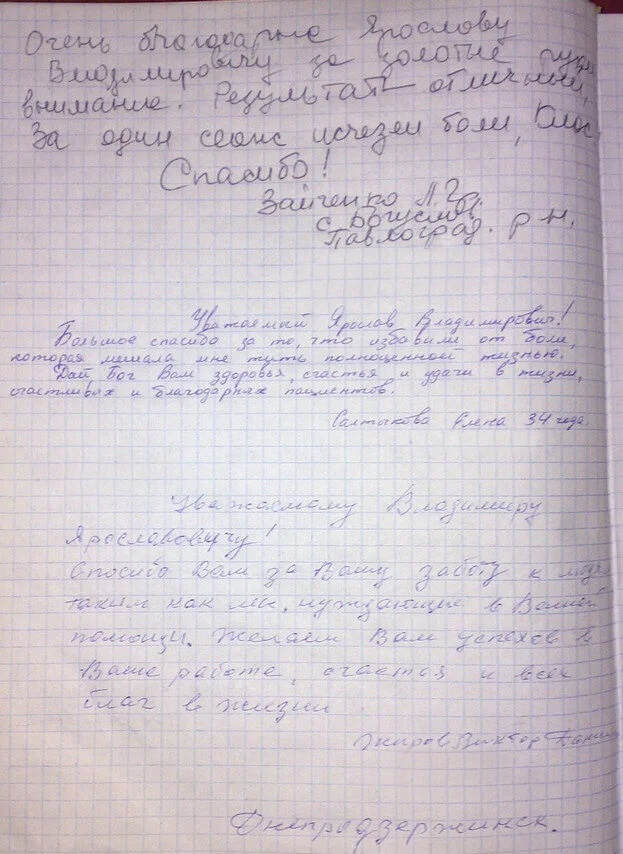 Очень благодарна Ярославу
Владимировичу за золотые руки,
внимание. Результат отличный,
За один сеанс исчезли боли,
Спасибо!
Зайченко Л.Г.
с. Богуслав
Павлоград. р-н.
Уважаемый Ярослав Владимирович!
Большое спасибо за то, что избавили от боли,
которая мешала мне жить полноценной жизнью.
Дай Бог Вам здоровья, счастья и удачи в жизни,
счастливых и благодарных пациентов.
Салтыкова Елена 34 года.
Уважаемому Владимиру
Ярославовичу!
Спасибо Вам за Вашу заботу к людям
таким как мы, нуждающие в Вашей
помощи. Желаем Вам успехов в
Ваше работе, счастья и всех
благ в жизни
Жиров Виктор
Днепродзержинск.